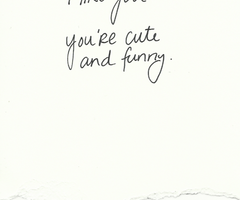 you're cute
and funny.